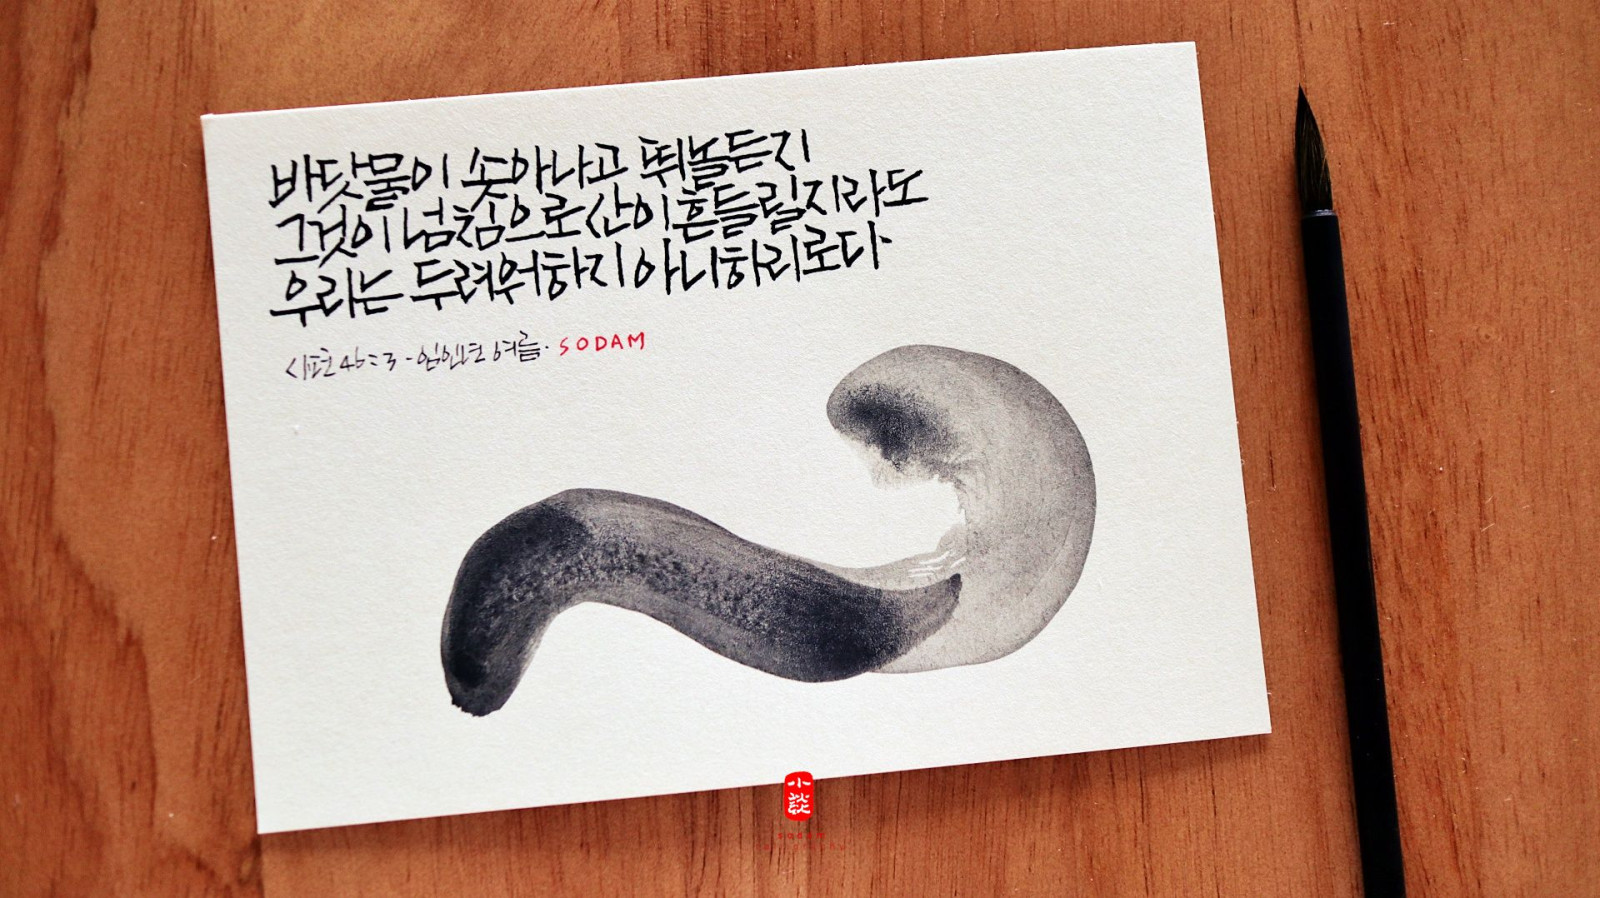 바닷물이 솟아나고 뛰놀든지
그것이 넘침으로 산이 흔들릴지라도
우리는 두려워하지 아니하리로다
시편 46:3 - 임인년 여름. SODAM
小談
sodam